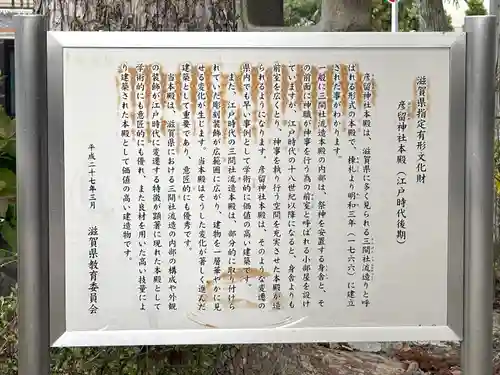 滋賀県指定有形文化財
彦留神社本殿（江戸時代後期）
彦留神社本殿は、滋賀県に多く見られる三間社流造りと呼
ばれる形式の本殿で、棟札より明和三年（一七六六）に建立
された事がわかります。
一般に三間社流造本殿の内部は、祭神を安置する身舎と、そ
の前面に神職が神事を行う為の前室と呼ばれる小部屋を設け
ていますが、江戸時代の十八世紀以降になると、身舎よりも
前室を広くとり、神事を執り行う空間を充実させた本殿が造
られるようになります。彦留神社本殿は、そのような変遷の
県内でも早い事例として学術的に価値の高い建築です。
また、江戸時代の三間社流造本殿は、部分的に取り付けら
れていた彫刻装飾が広範囲に広がり、建物を一層華やかに見
せる変化が生じます。当本殿はそうした変化が著しく進んだ
建築として重要であり、意匠的にも優秀です。
当本殿は、滋賀県における三間社流造の内部の構成や外観
の装飾が江戸時代に変遷する特徴が顕著に現れた本殿として
学術的にも意匠的にも優れ、また良材を用いた高い技量によ
り建築された本殿として価値の高い建造物です。
平成二十七年三月
滋賀県教育委員会